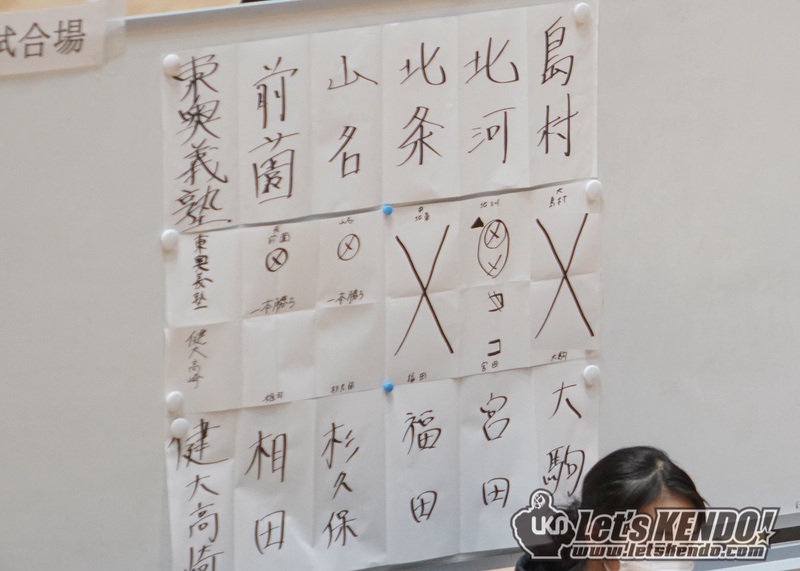 試合場
東奥義塾
前薗
山名
北条
北河
島村
東奥義塾
前薗
一本勝ち
山名
一本勝ち
北条
北河
メ
メ
コ
大
島村
健大高崎
相田
杉久保
福田
宮田
大駒
健大高崎
相田
杉久保
福田
宮田
大駒
LKD
Let's KENDO!
www.letskendo.com